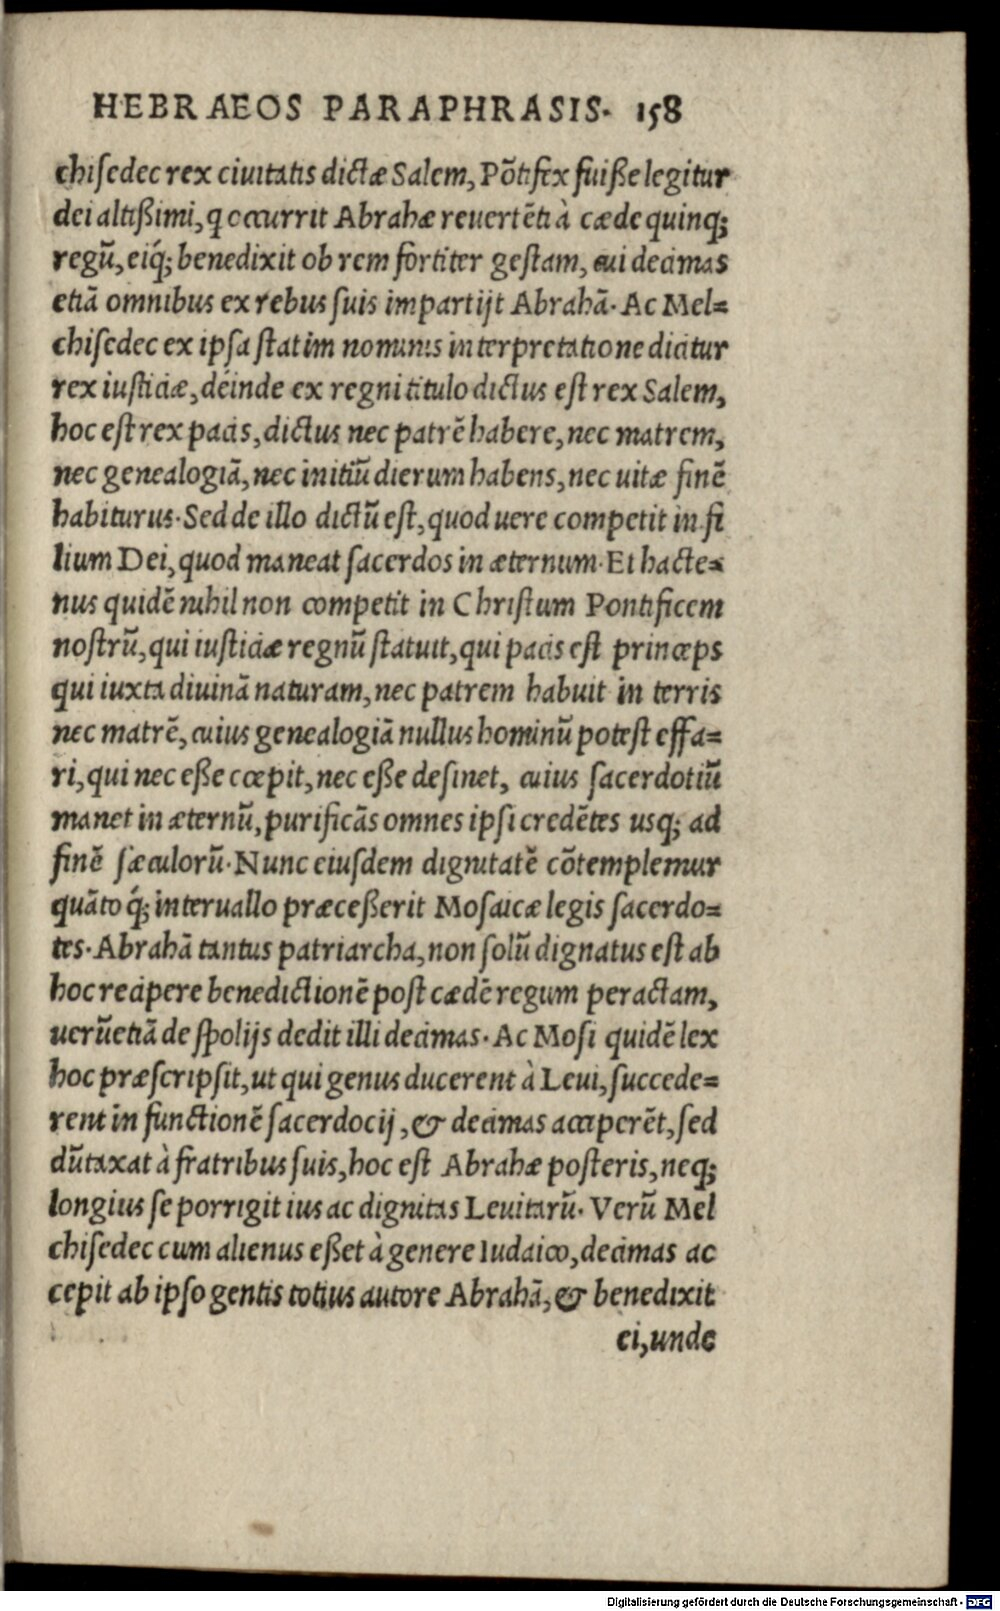 HEBRAEOS PARAPHRASIS. 158
chiſedec rex ciuitatis dictæ Salem, Põtifex fuiße legitur
dei altißimi, q occurrit Abrahæ reuertẽti à cæde quinq;
regũ, eiq́; benedixit ob rem fortiter geſtam, cui decimas
etiã omnibus ex rebus ſuis impartijt Abrahã. Ac Mel=
chiſedec ex ipſa ſtatim nominis interpretatione dicitur
rex iuſticiæ, deinde ex regni titulo dictus eſt rex Salem,
hoc eſt rex pacis, dictus nec patrẽ habere, nec matrem,
nec genealogiã, nec initiũ dierum habens, nec uitæ finẽ
habiturus. Sed de illo dictũ eſt, quod uere competit in fi
lium Dei, quod maneat ſacerdos in æternum. Et hacte=
nus quidẽ nihil non competit in Chriſtum Pontificem
noſtrũ, qui iuſticiæ regnũ ſtatuit, qui pacis eſt princeps
qui iuxta diuinã naturam, nec patrem habuit in terris
nec matrẽ, cuius genealogiã nullus hominũ poteſt effa=
ri, qui nec eße cœpit, nec eße deſinet, cuius ſacerdotiũ
manet in æternũ, purificãs omnes ipſi credẽtes usq; ad
finẽ ſæculorũ. Nunc eiuſdem dignitatẽ cõtemplemur
quãto q́; interuallo præceßerit Moſaicæ legis ſacerdo=
tes. Abrahã tantus patriarcha, non ſolũ dignatus eſt ab
hoc recipere benedictionẽ poſt cædẽ regum peractam,
uerũetiã de ſpolijs dedit illi decimas. Ac Moſi quidẽ lex
hoc præſcripſit, ut qui genus ducerent à Leui, ſuccede=
rent in functionẽ ſacerdocij, & decimas acciperẽt, ſed
dũtaxat à fratribus ſuis, hoc eſt Abrahæ poſteris, neq;
longius ſe porrigit ius ac dignitas Leuitarũ. Verũ Mel
chiſedec cum alienus eßet à genere Iudaico, decimas ac
cepit ab ipſo gentis totius autore Abrahã, & benedixit
ei, unde
Digitalisierung gefördert durch die Deutsche Forschungsgemeinschaft - DFG